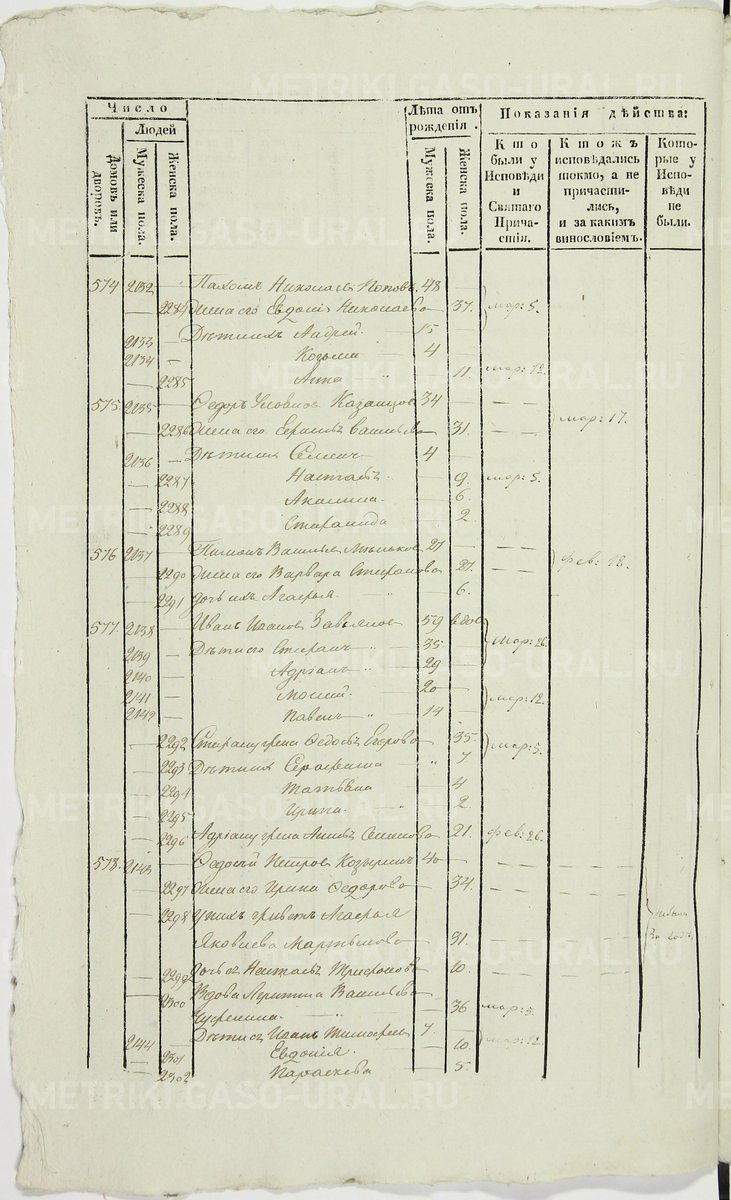 Число
Людей
Домовъ или дворовъ.
Мужеска пола.
Женска пола.
Лѣта отъ рожденія.
Мужеска пола.
Женска пола.
Показанія дѣйства:
Кто были у Исповѣди и Святаго Причастія.
Ктожъ исповѣдались токмо, а не причастились, и за какимъ винословіемъ.
Которые у Исповѣди не были.
574 2132 — Пахомъ Николаевъ Поповъ 48 —
— 2284 Жена его Евдокія Николаева — 37. мар: 5.
2133 — Дѣти ихъ Андрей 15
2134 — Козьма 4
— 2285 Анна " 11 мар: 12
575 2135 — Федоръ Казанцов 34 —
— 2286 Жена его Васильева — 31. — мар: 17.
2136 — Дѣти ихъ Семенъ 4
— 2287 Настасья — 9. мар: 5.
— 2288 Акилина — 6.
— 2289 Степанида — 2
576 2137 — Василье 27 —
— 2290 Жена его Варвара Степанова — 27. — фев: 18.
— 2291 дочь ихъ Агафья — 6.
577 2138 — Иванъ Ивановъ Завьялов 59 вдов
2139 — Дѣти его Степанъ 35 — мар: 26.
2140 — Адріанъ 29 —
2141 — Мосий 20 — мар: 12.
2142 — Павелъ 14 —
— 2292 Степану жена Федосья Егорова — 35 мар: 5.
— 2293 Дѣти ихъ Серафима " 7
— 2294 Татьяна — 4
— 2295 Ирина — 2
— 2296 Адріану жена Анна Семенова 21. фев: 26.
578. 2143 — Федосій Петров Козыринъ 40 —
— 2297 Жена его Ирина Федорова — 34.
— 2298 У нихъ живетъ Агафья
Яковлева Мартынова — 31.
— 2299 Дочь ея Настасья Трифонова 10.
— 2300 Вдова Васильева
— 36 мар: 5.
2144 — Дѣти ея Иванъ Тимофеев 7
— 2301 Евдокія. — 10. мар: 12.
— 2302 Параскева — 5.
METRIKI.GASO-URAL.RU